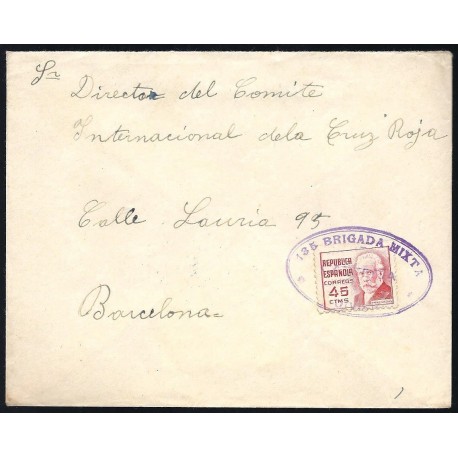 Sr
Director del Comite
Internacional dela Cruz Roja
Calle Lauria 95
Barcelona=
135 BRIGADA MIXTA
REPUBLICA
ESPAÑOLA
CORREOS
45
CTMS